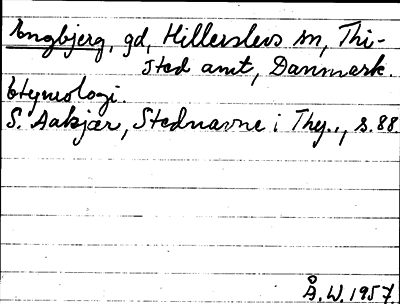 Engbjerg, gd, Hillerslevs sn, Thi-
sted amt, Danmark.
Etymologi.
S. Aakjær, Stednavne i Thy., s. 88.
Å. W. 1957.